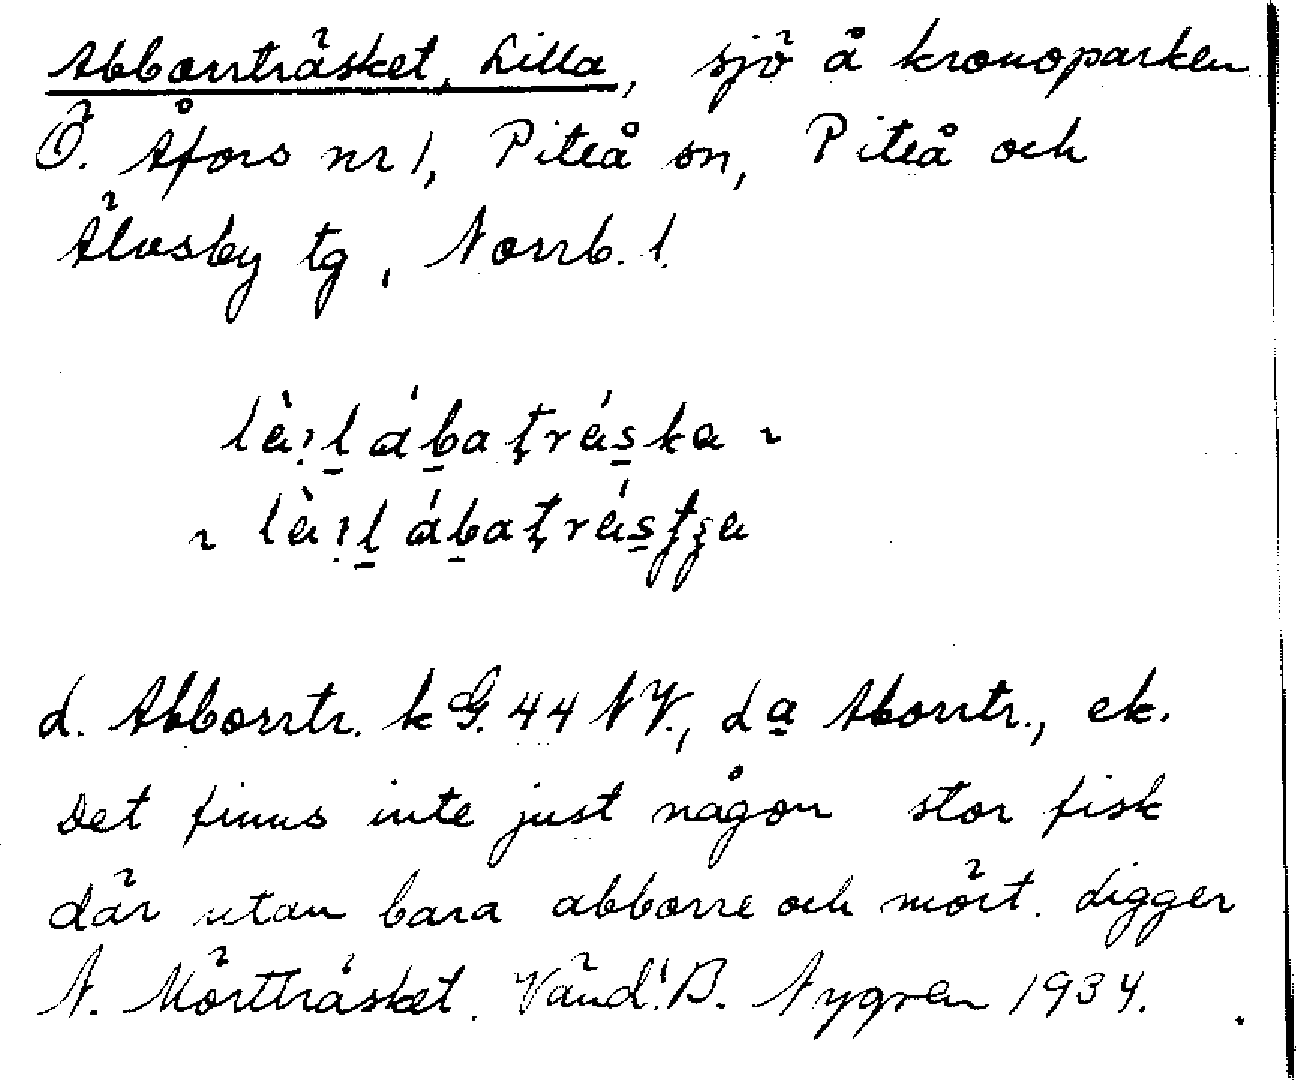 Abborrträsket, Lilla, sjö å kronoparken
Ö. Åfors nr 1, Piteå sn, Piteå och
Älvsby tg, Norrb. l.
d. Abborrtr. k G. 44 NV., da Aborrtr., ek.
Det finns inte just någon stor fisk
där utan bara abborre och mört. digger
N. Mörtträsket. Vänd! B. Nygren 1934.